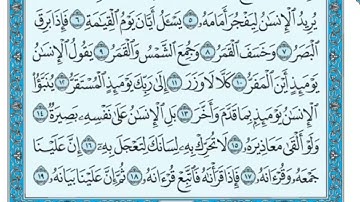 يُرِيدُ الْإِنسَٰنُ لِيَفْجُرَ أَمَامَهُۥ ۝٥ يَسْـَٔلُ أَيَّانَ يَوْمُ الْقِيَٰمَةِ ۝٦ فَإِذَا بَرِقَ
الْبَصَرُ ۝٧ وَخَسَفَ الْقَمَرُ ۝٨ وَجُمِعَ الشَّمْسُ وَالْقَمَرُ ۝٩ يَقُولُ الْإِنسَٰنُ
يَوْمَئِذٍ أَيْنَ الْمَفَرُّ ۝١٠ كَلَّا لَا وَزَرَ ۝١١ إِلَىٰ رَبِّكَ يَوْمَئِذٍ الْمُسْتَقَرُّ ۝١٢ يُنَبَّؤُا
الْإِنسَٰنُ يَوْمَئِذٍۭ بِمَا قَدَّمَ وَأَخَّرَ ۝١٣ بَلِ الْإِنسَٰنُ عَلَىٰ نَفْسِهِۦ بَصِيرَةٌ ۝١٤
وَلَوْ أَلْقَىٰ مَعَاذِيرَهُۥ ۝١٥ لَا تُحَرِّكْ بِهِۦ لِسَانَكَ لِتَعْجَلَ بِهِۦٓ ۝١٦ إِنَّ عَلَيْنَا
جَمْعَهُۥ وَقُرْءَانَهُۥ ۝١٧ فَإِذَا قَرَأْنَٰهُ فَاتَّبِعْ قُرْءَانَهُۥ ۝١٨ ثُمَّ إِنَّ عَلَيْنَا بَيَانَهُۥ ۝١٩